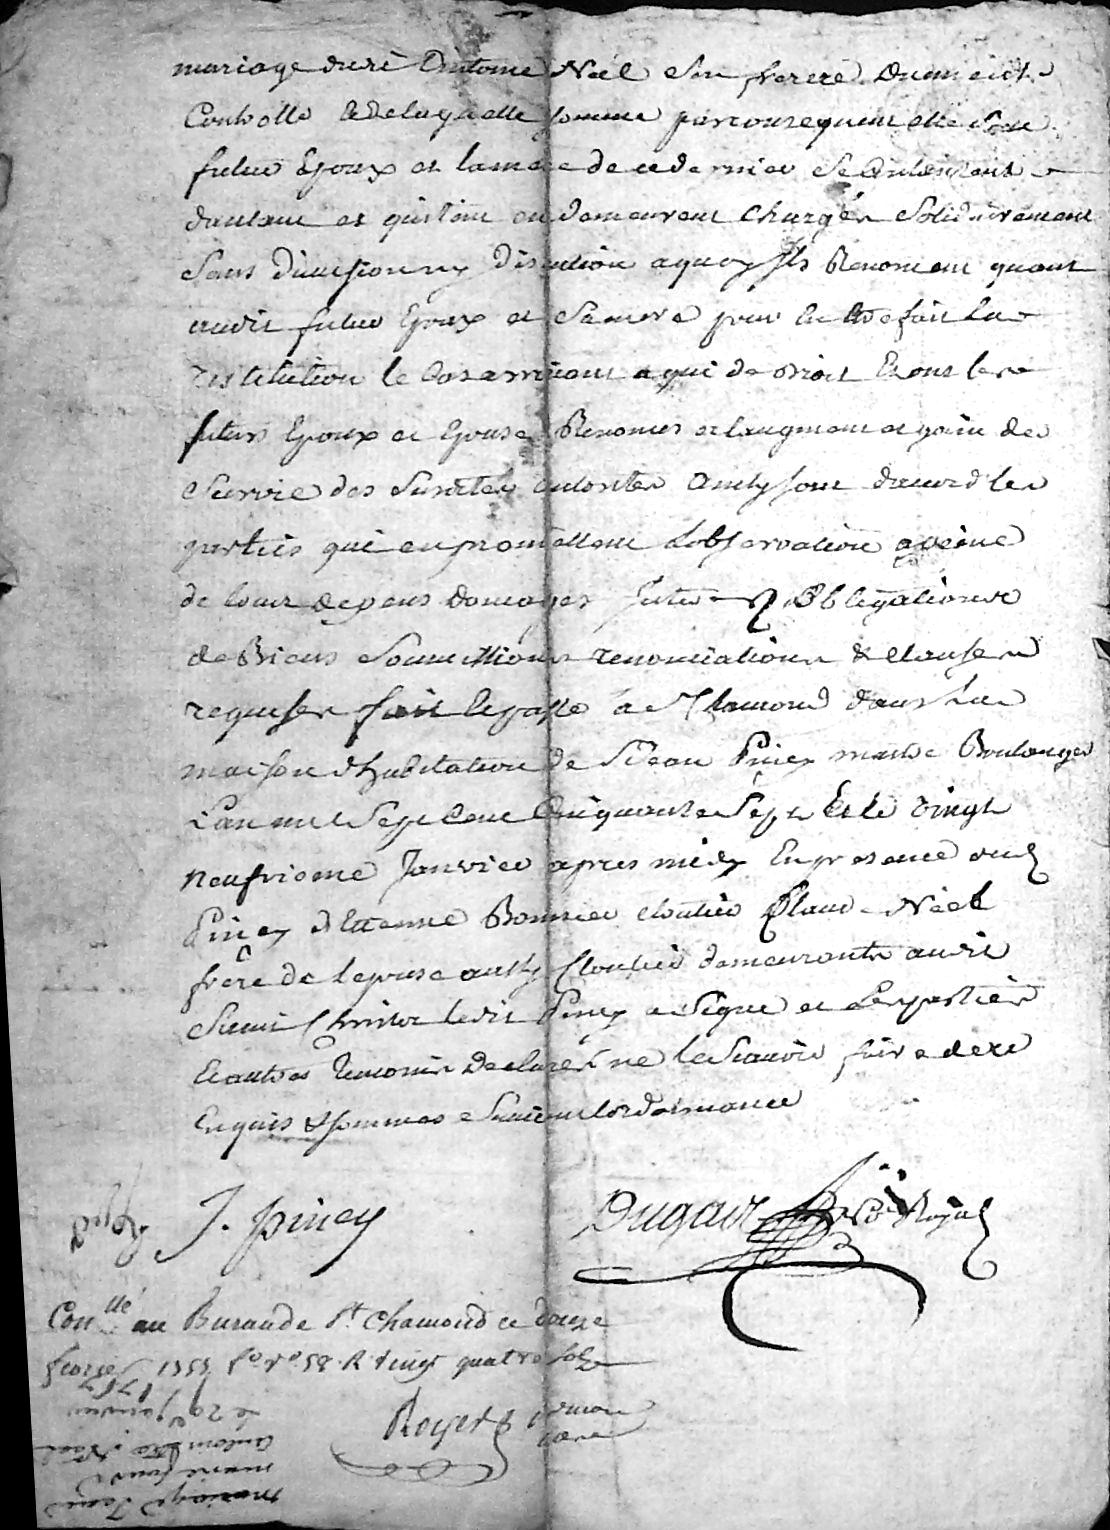 mariage dudit Antoine Noël son frere dument
Controllé & de laquelle somme par consequent elle son
futur Epoux et la mere de ce dernier se contentent
dautant et quittent en demeurent chargés Solidairement
Sans division ny discution a quoy ils Renoncent quant
audit futur Epoux et Sa mere pour en Etre fait la
restitution le Cas arrivant a qui de droit Et ont les
futurs Epoux et Epouse Renoncés et laugment et gain de
Survie des Susdites Ainsy sont daccord les
parties qui en promettent Lobservation a peine
de tous depens domages Obligations
de Biens Soumissions renonciations & clauses
requises fait & passé a St Chamond dans la
maison dhabitation de Sr Jean Piney Boulanger
Lan mil Sept Cent Cinquante Sept & le vingt
neufvieme Janvier apres midy En presence dud
Piney & Etienne Bonnier cloutier Claude Noël
frere de lepouse aussy Cloutier demeurants audit
Saint Chamond ledit Piney a Signé et Les parties
Et autres temoins Declarés ne le Scavoir faire de ce
Enquis & sommés Suivant lordonnance
J. piney
Dugait No Royal
Conllé au Bureau de St Chamond ce douze
fevrier 1757 fo vo 58 R vingt quatre sols
Royer
1757
le 29 janvier
antoinette Noël
mariage